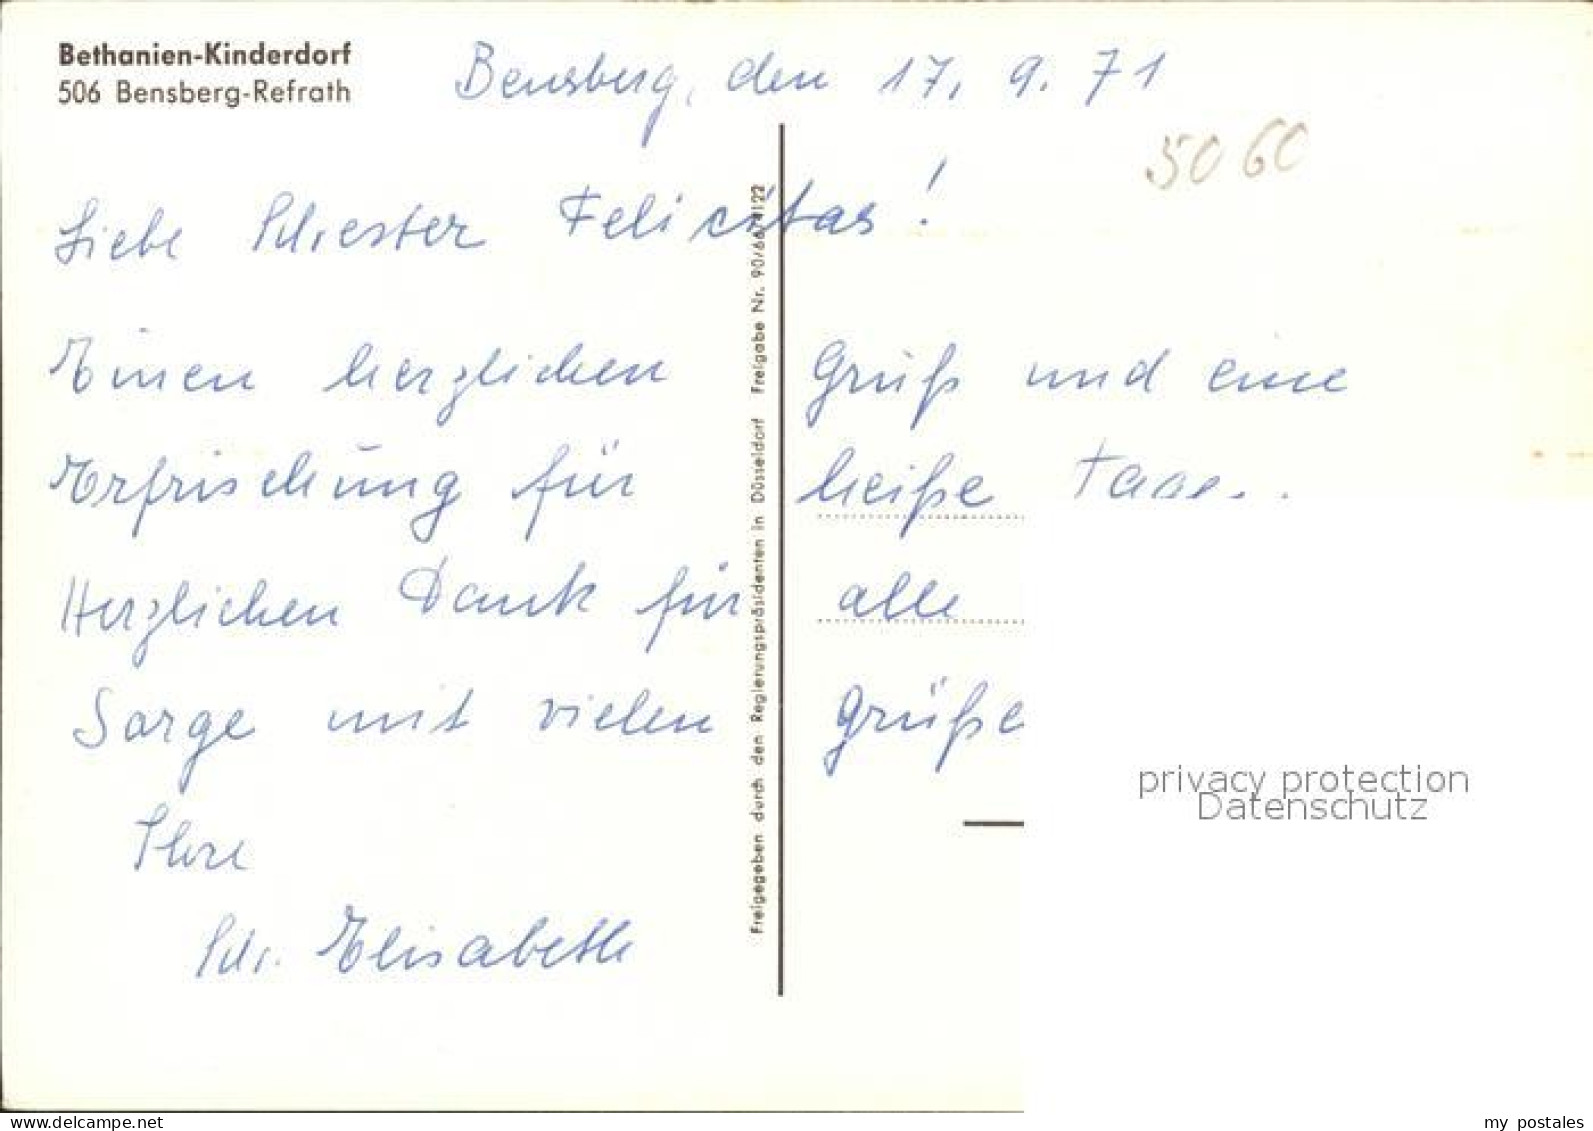 Bethanien-Kinderdorf
506 Bensberg-Refrath
Bensberg, den 17. 9. 71
5060
Liebe Schwester Felicitas!
Einen herzlichen Gruß und eine
Erfrischung für heiße Tage..
Herzlichen Dank für alle
Sorge mit vielen Grüße
Ihre
Schr. Elisabeth
Freigegeben durch den Regierungspräsidenten in Düsseldorf Freigabe Nr. 90/66/4122
privacy protection
Datenschutz
my postales